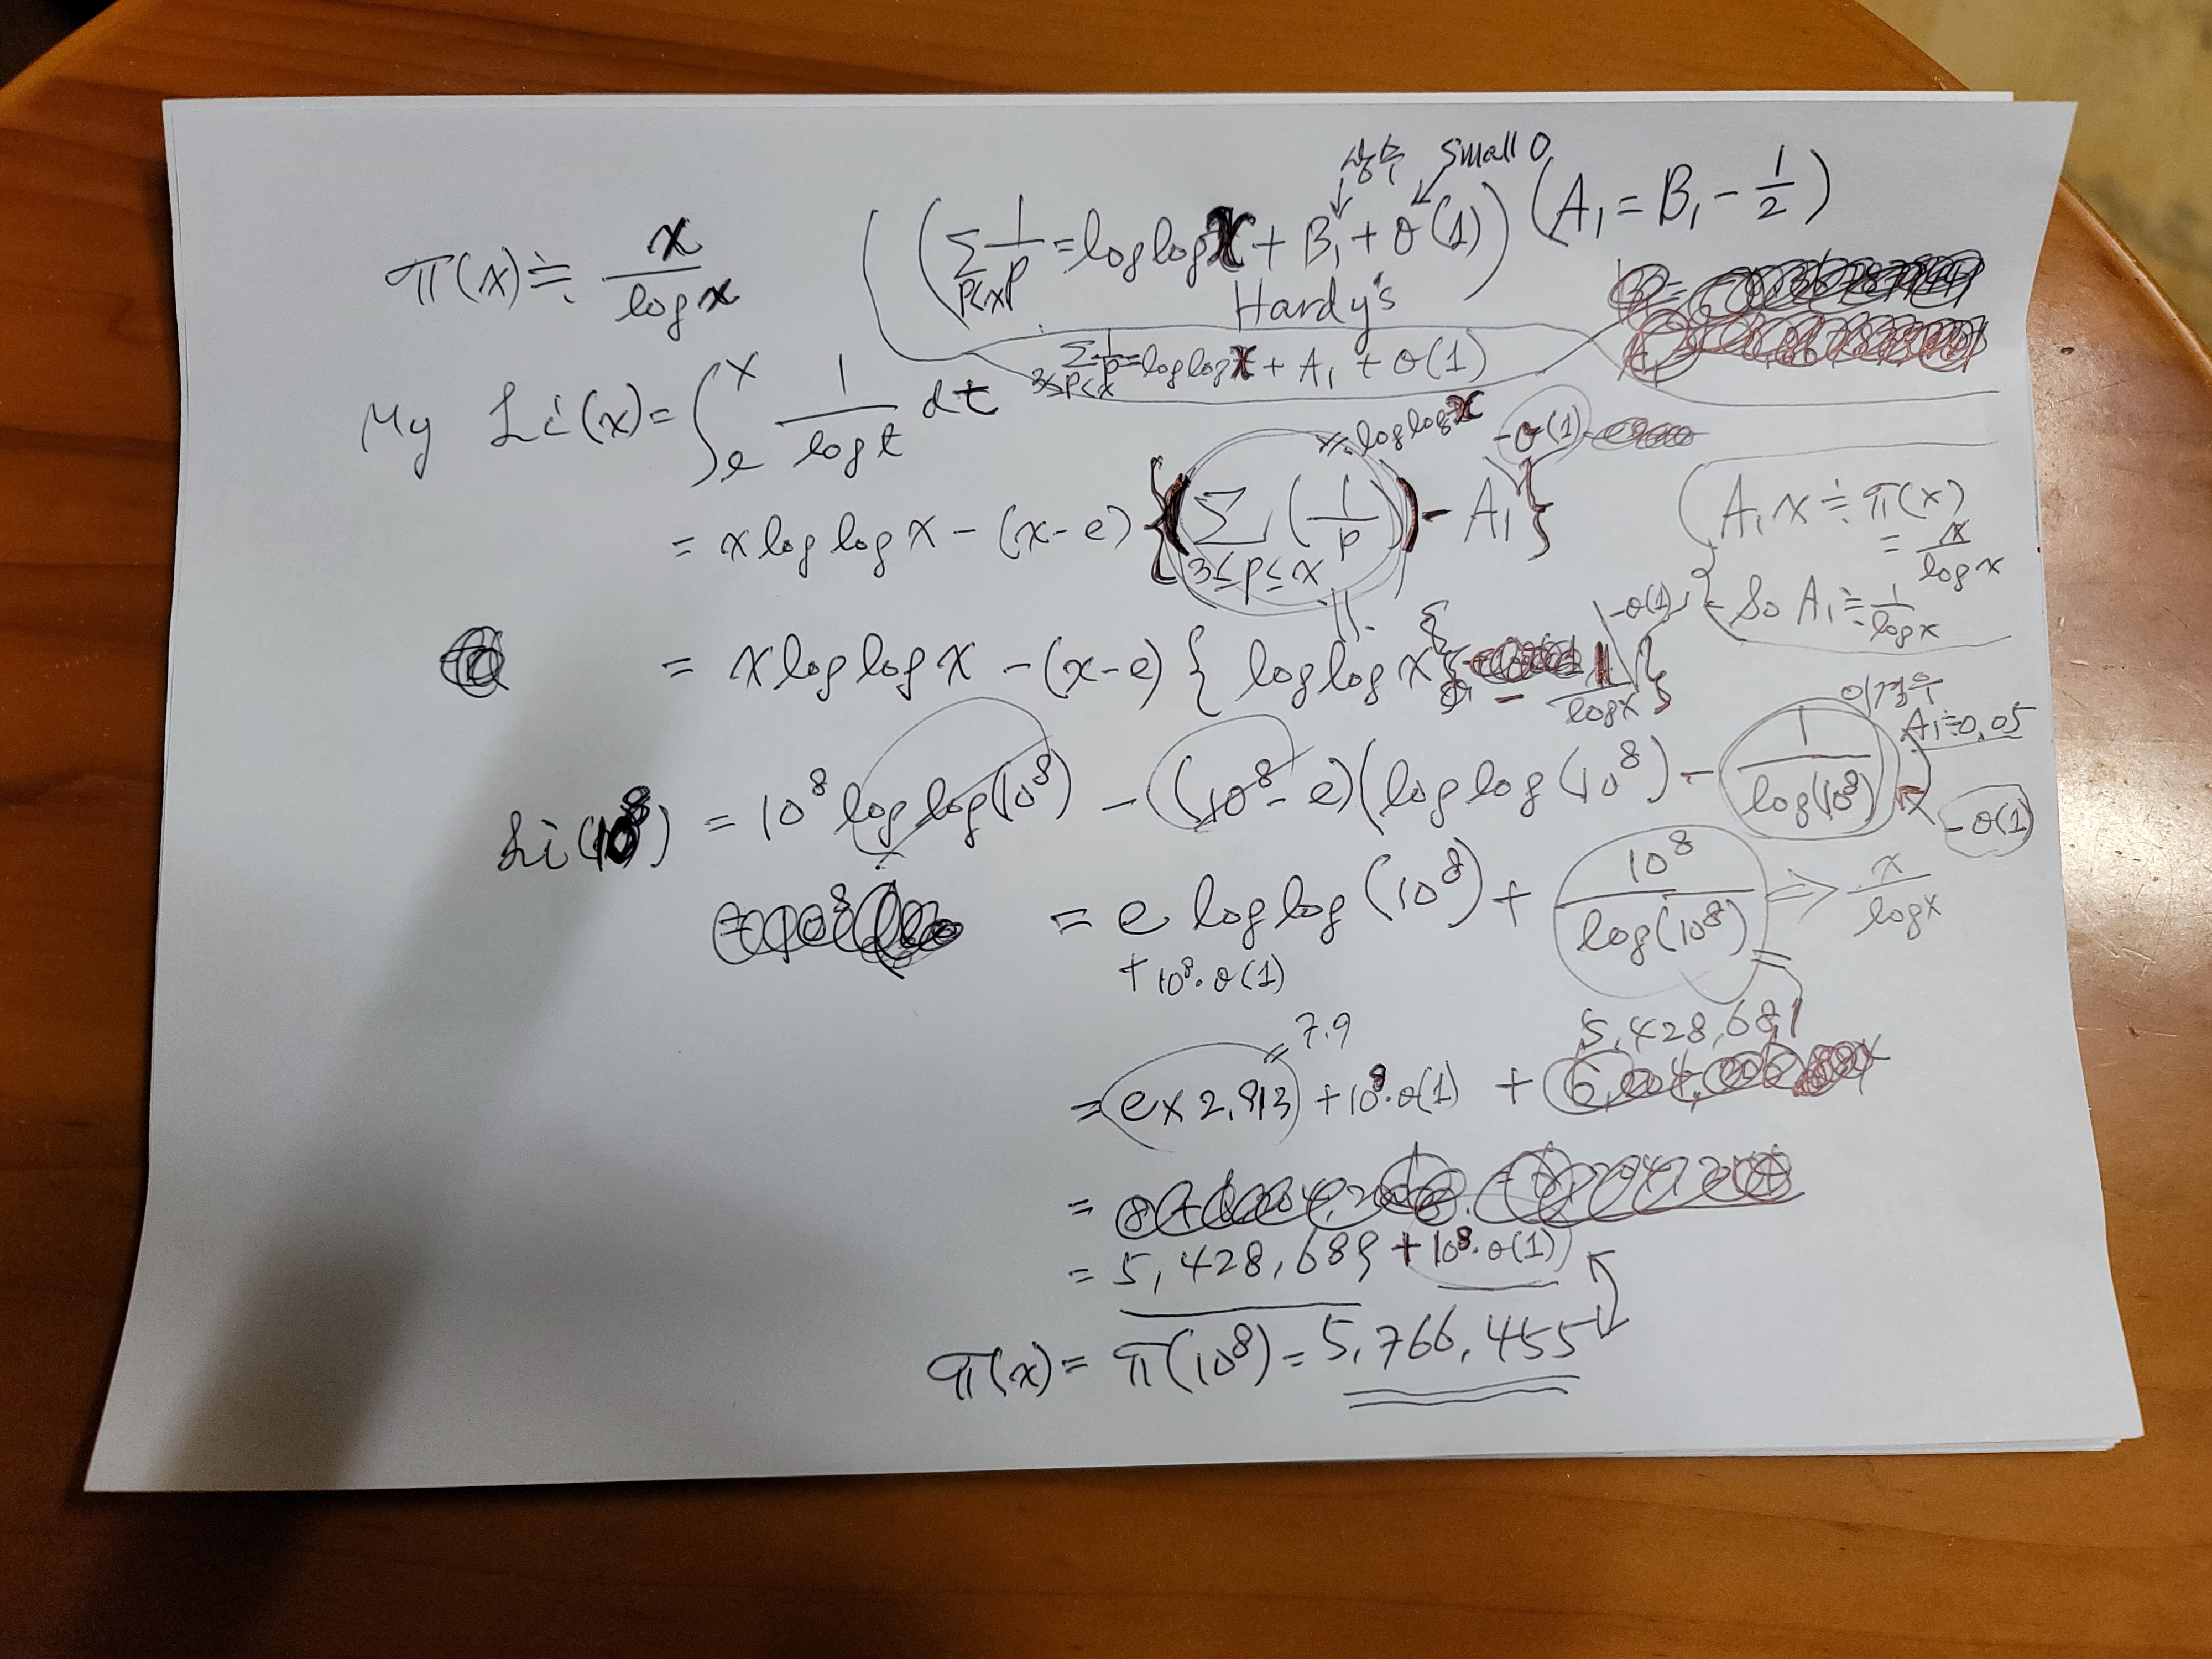 π(x) ≒ x / log x
( Σ_{p<x} 1/p = log log x + B₁ + o(1) ) ( A₁ = B₁ - 1/2 )
상수 small o
Hardy's
Σ_{3≤p<x} 1/p = log log x + A₁ + o(1)
My Li(x) = ∫_e^x 1 / log t dt
≒ log log x - o(1)
= x log log x - (x-e) { ( Σ_{3≤p≤x} (1/p) ) - A₁ }
A₁x ≒ π(x)
= x / log x
So A₁ ≒ 1 / log x
= x log log x - (x-e) { log log x - 1 / log x - o(1) }
이 경우
A₁ ≒ 0.05
Li(10⁸) = 10⁸ log log(10⁸) - (10⁸-e)(log log(10⁸) - 1 / log(10⁸) - o(1)
= e log log(10⁸) + 10⁸ / log(10⁸) ⇒ x / log x
+ 10⁸·o(1)
= 7.9
= 5,428,681
= e×2.913 + 10⁸·o(1) +
=
= 5,428,689 + 10⁸·o(1)
π(x) = π(10⁸) = 5,766,455